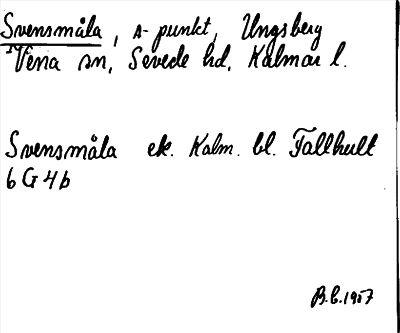 Svensmåla, A-punkt, Ungsberg
Vena sn, Sevede hd, Kalmar l.
Svensmåla ek. Kalm. bl. Fallhult
6 G 4 b
B.C. 1957